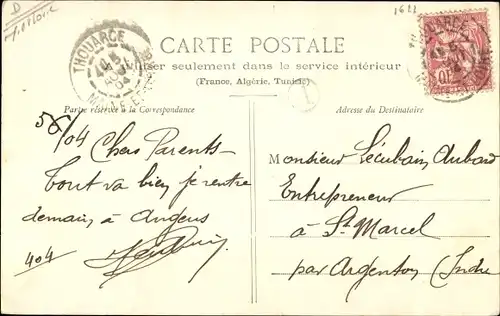 D
1622
THOUARCÉ
5
04
CARTE POSTALE
A utiliser seulement dans le service intérieur
(France, Algérie, Tunisie)
THOUARCÉ
10
Partie réservée à la Correspondance
Adresse du Destinataire
Chers Parents
Tout va bien je rentre
demain à Angers
404
Monsieur Lécubain Aubard
Entrepreneur
à St Marcel
par Argenton (Indre